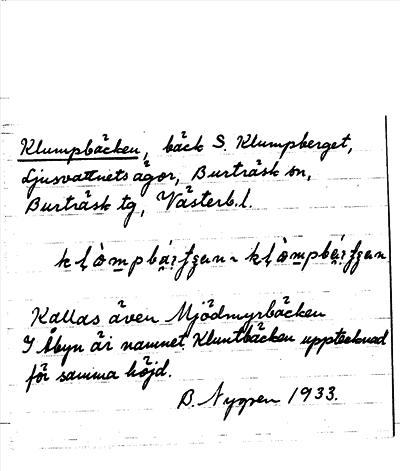 Klumpbäcken, bäck S. Klumpberget,
Ljusvattnets ägor, Burträsk sn,
Burträsk tg, Västerb.l.
Kallas även Mjödmyrbäcken
I Åbyn är namnet Kluntbäcken upptecknad
för samma höjd.
B. Nygren 1933.